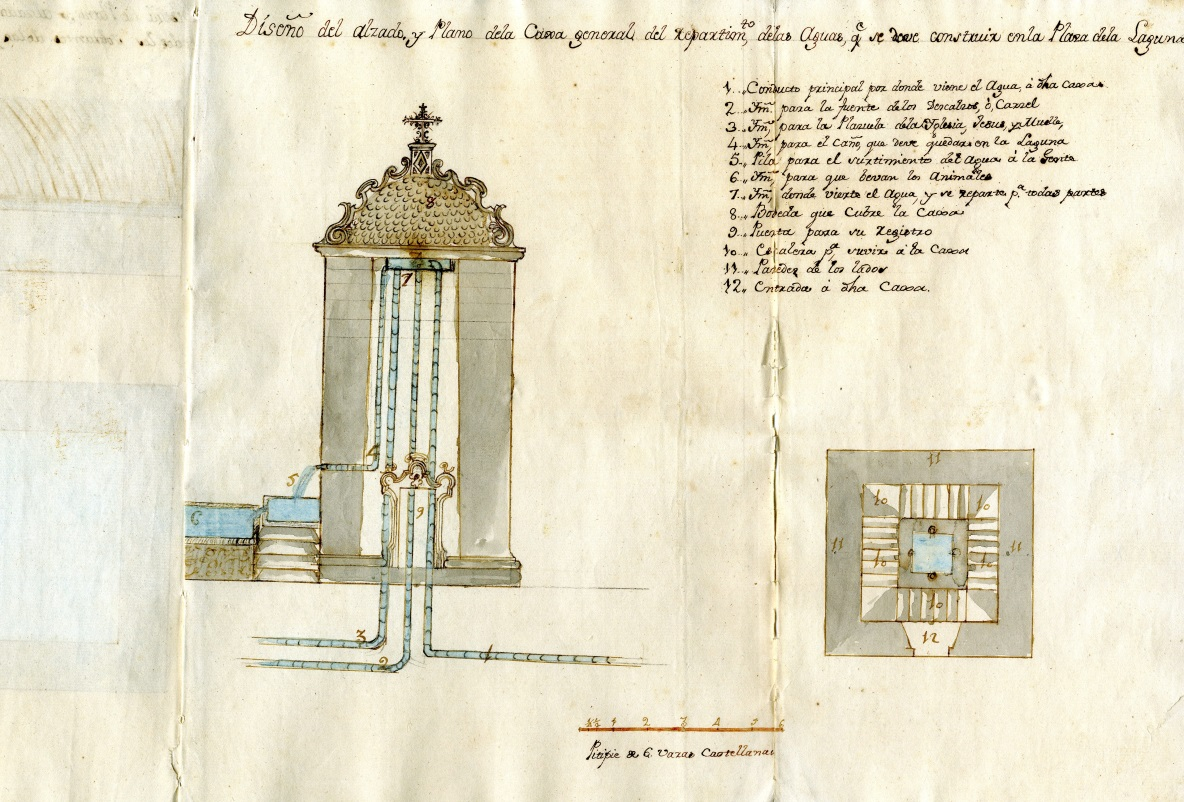 Diseño del alzado, y Plano dela Caxa general del repartim,to delas Aguas, q̃ se deve construir enla Plaza dela Laguna
1.., Conducto principal por donde viene el Agua, á dha Caxa.
2.., Ytm̃ para la fuente de los Descalzos, ó, Carzel
3.., Ytm̃ para la Plazuela dela Yglesia, Jesus, y Muelle,
4.., Ytm̃ para el Caño, que deve quedar en la Laguna
5.., Pila para el surtimiento del Agua á la Gente
6.., Ytm̃ para que bevan los Animales
7.., Ytm̃ donde vierte el Agua, y se reparte p.ª todas partes
8.., Boveda que Cubre la Caxa
9.., Puerta para su Registro
10.., Escalera p.ª suvir á la Caxa
11.., Paredes de los lados
12.., Entrada á dha Caxa.
8
7
4
5
6
9
3
2
1
11
10 10
11 11
10 10
10
12
1 2 3 4 5 6
Pitipie de 6 varas Castellanas